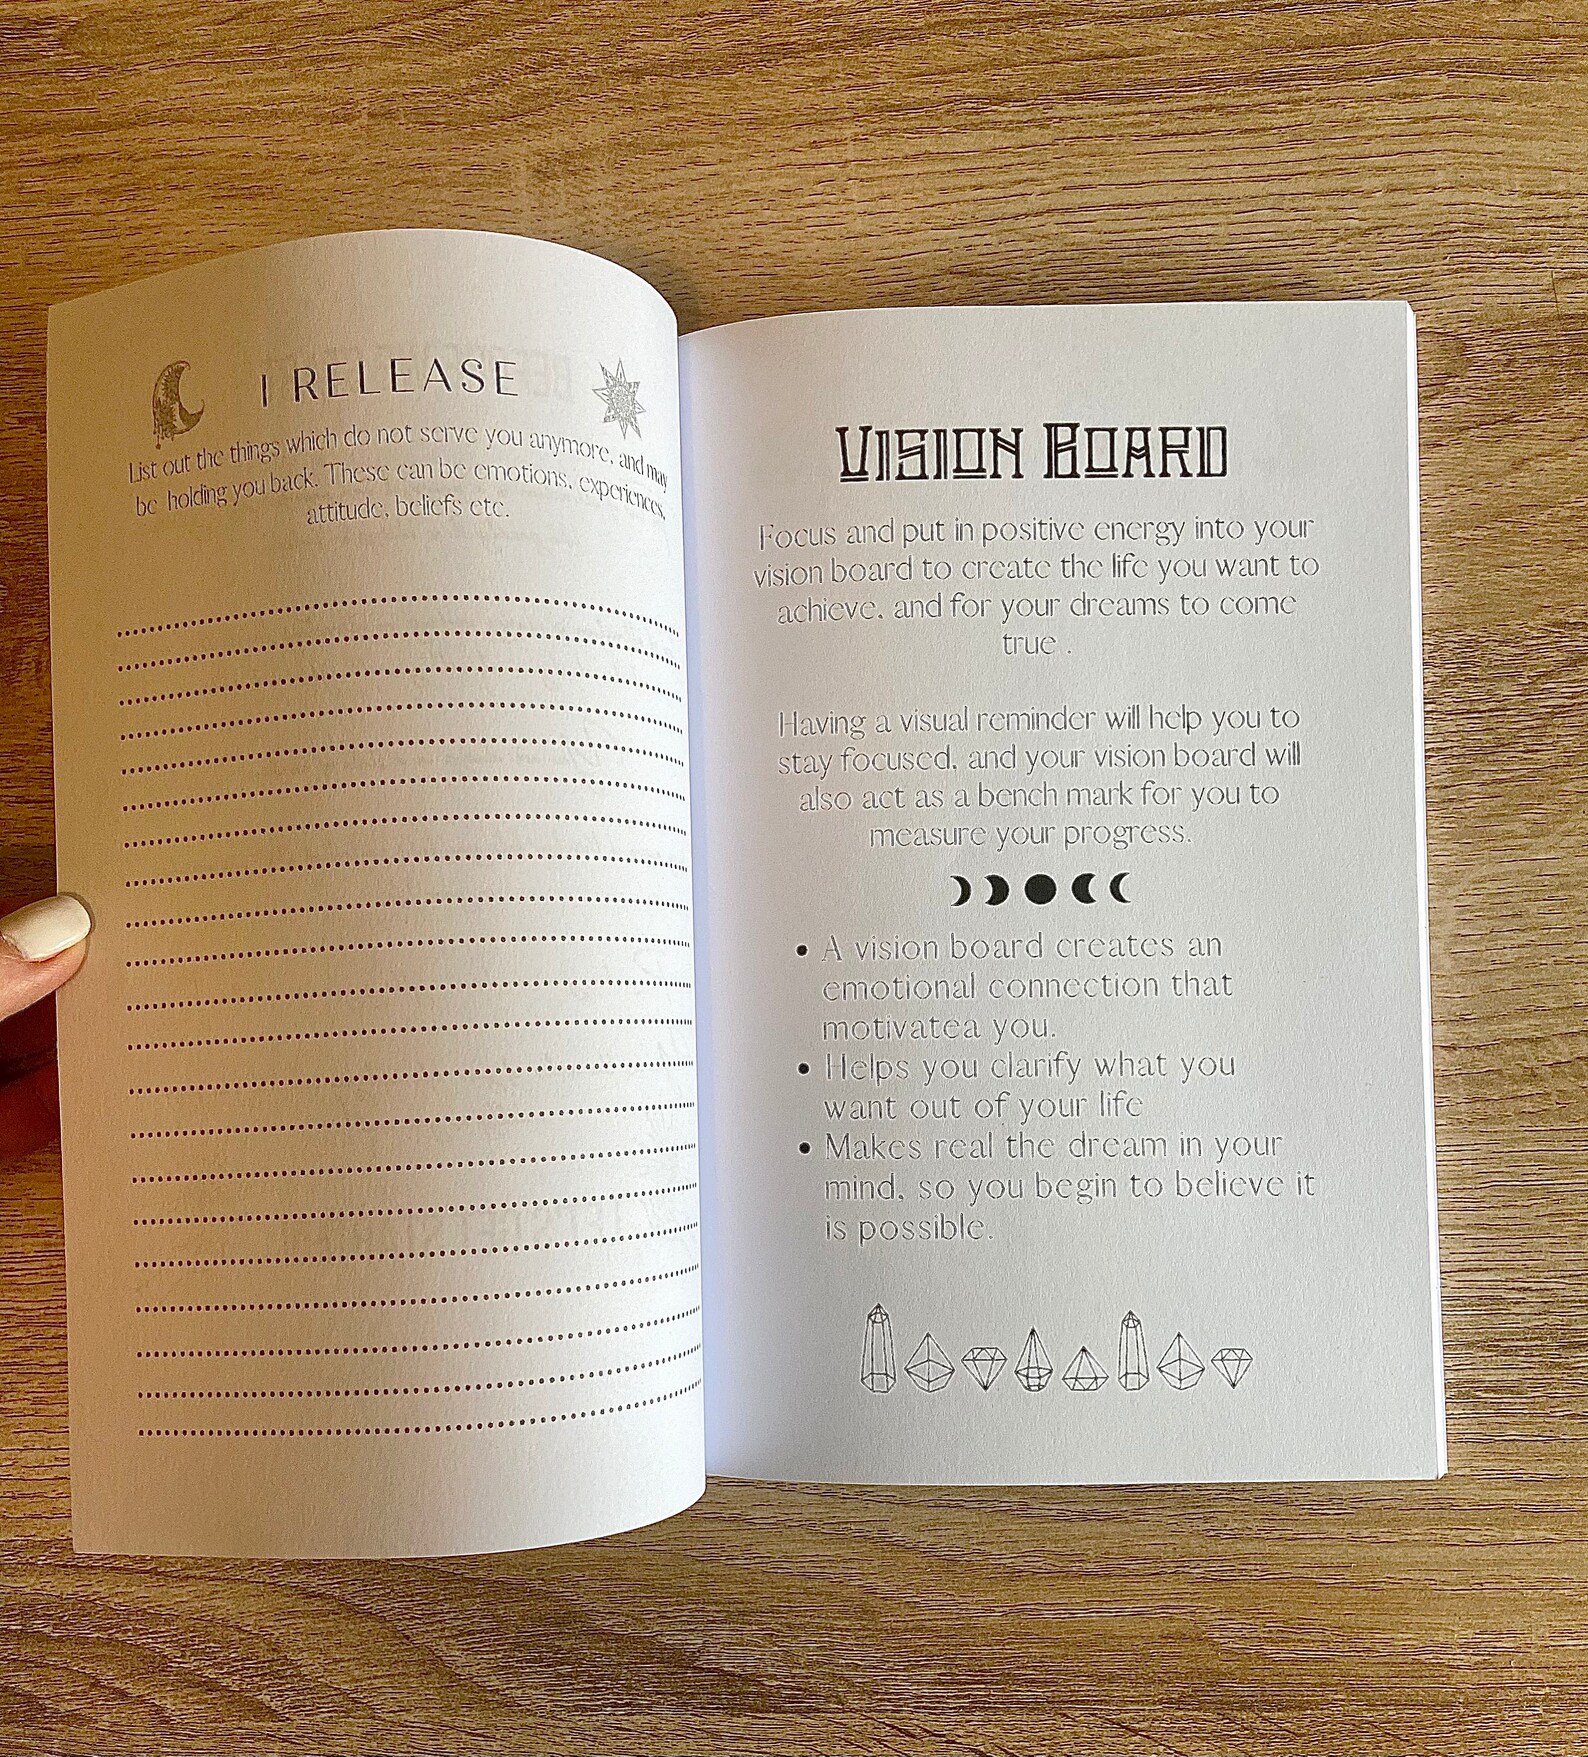 I RELEASE
List out the things which do not serve you anymore, and may
be holding you back. These can be emotions, experiences,
attitude, beliefs etc.
VISION BOARD
Focus and put in positive energy into your
vision board to create the life you want to
achieve, and for your dreams to come
true .
Having a visual reminder will help you to
stay focused, and your vision board will
also act as a bench mark for you to
measure your progress.
• A vision board creates an
emotional connection that
motivatea you.
• Helps you clarify what you
want out of your life
• Makes real the dream in your
mind, so you begin to believe it
is possible.